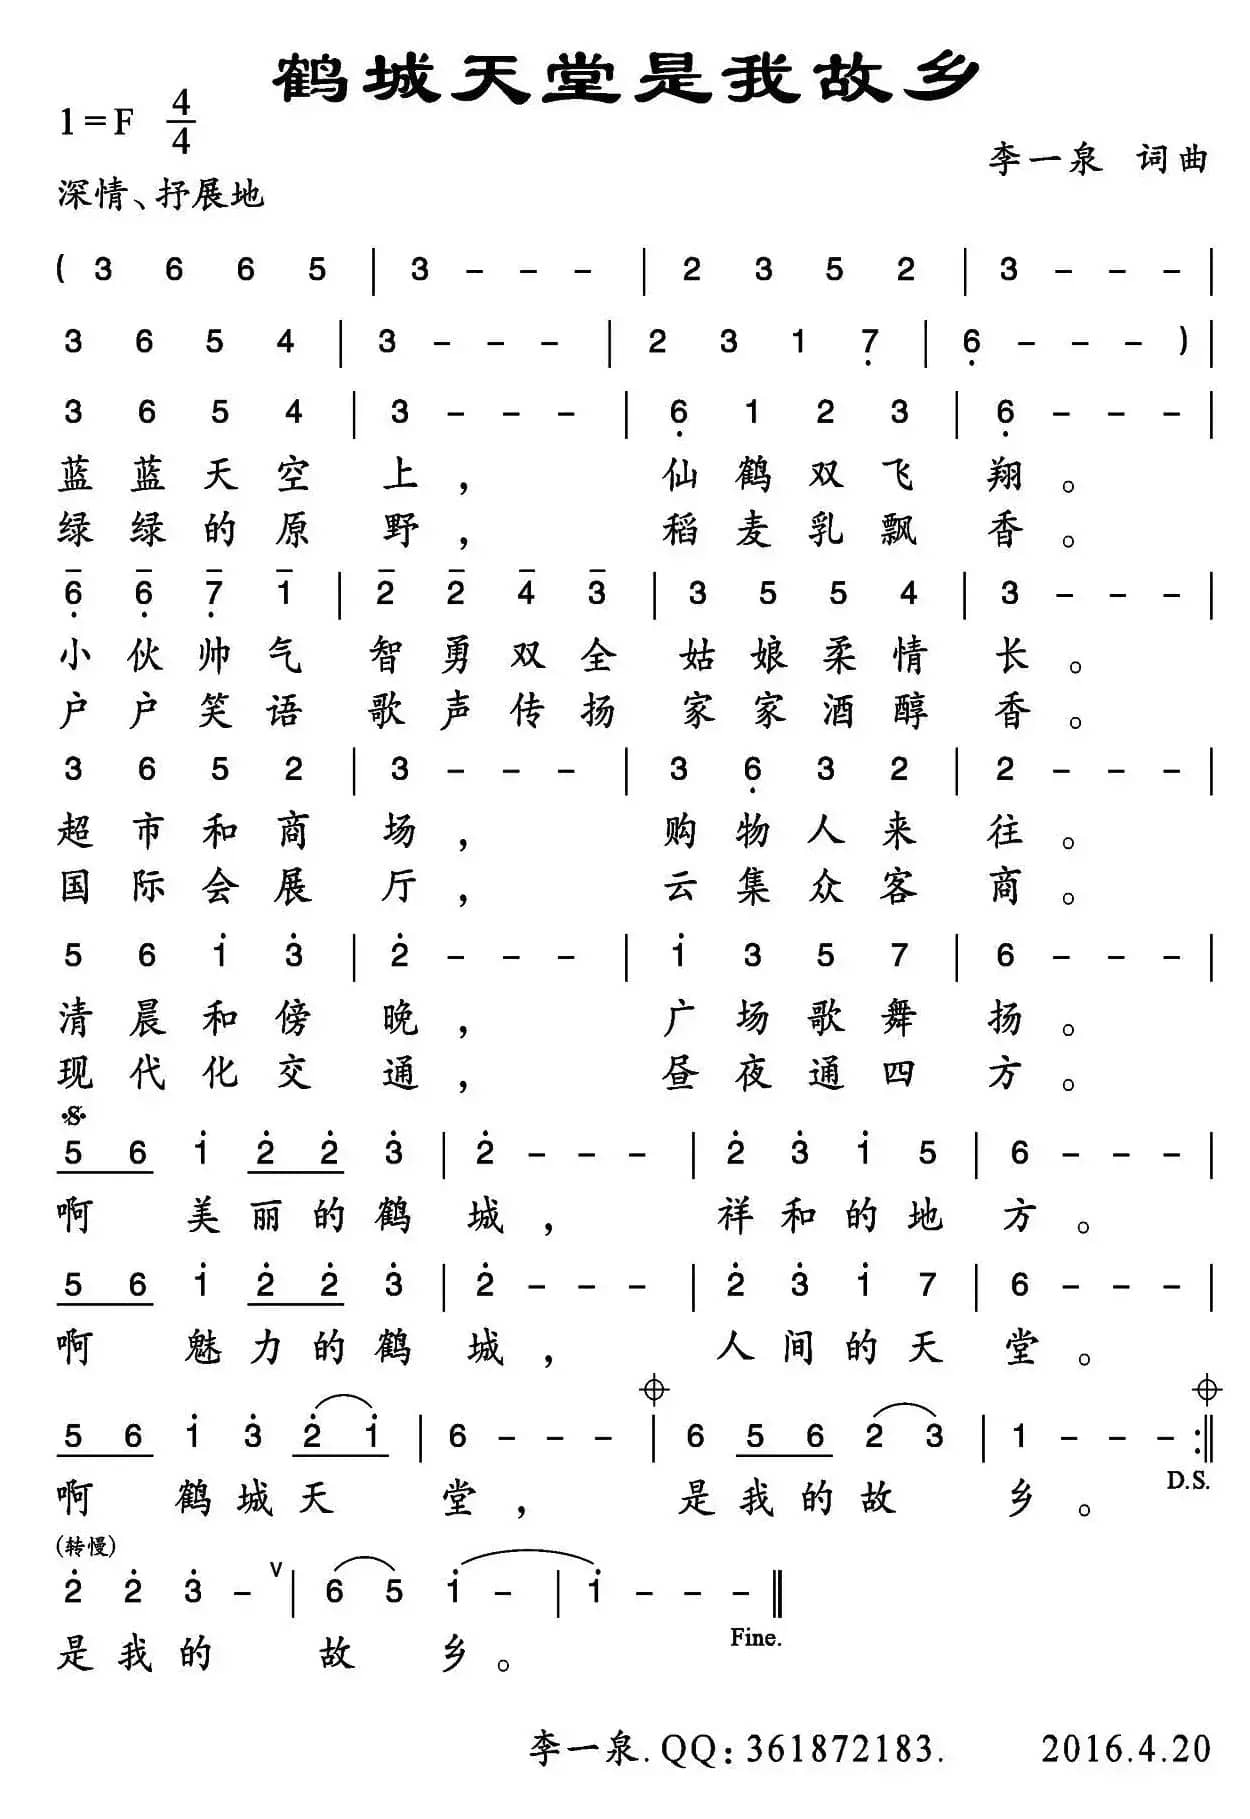 鹤城天堂是我故乡
1=F 4/4
李一泉 词曲
深情、抒展地
( 3 6 6 5 | 3 - - - | 2 3 5 2 | 3 - - - |
3 6 5 4 | 3 - - - | 2 3 1 7̣ | 6̣ - - - ) |
3 6 5 4 | 3 - - - | 6̣ 1 2 3 | 6̣ - - - |
蓝蓝天空上， 仙鹤双飞翔。
绿绿的原野， 稻麦乳飘香。
6̣̅ 6̣̅ 7̣̅ 1̅ | 2̅ 2̅ 4̅ 3̅ | 3 5 5 4 | 3 - - - |
小伙帅气 智勇双全 姑娘柔情长。
户户笑语 歌声传扬 家家酒醇香。
3 6 5 2 | 3 - - - | 3 6̣ 3 2 | 2 - - - |
超市和商场， 购物人来往。
国际会展厅， 云集众客商。
5 6 1̇ 3̇ | 2̇ - - - | 1̇ 3 5 7 | 6 - - - |
清晨和傍晚， 广场歌舞扬。
现代化交通， 昼夜通四方。
𝄋
5 6 1̇ 2̇ 2̇ 3̇ | 2̇ - - - | 2̇ 3̇ 1̇ 5 | 6 - - - |
啊 美丽的鹤城， 祥和的地方。
5 6 1̇ 2̇ 2̇ 3̇ | 2̇ - - - | 2̇ 3̇ 1̇ 7 | 6 - - - |
啊 魅力的鹤城， 人间的天堂。
𝄌 𝄌
5 6 1̇ 3̇ 2̇ 1̇ | 6 - - - | 6 5 6 2 3 | 1 - - - :||
D.S.
啊 鹤城天堂， 是我的故乡。
(转慢)
2̇ 2̇ 3̇ - ∨ | 6 5 1̇ - | 1̇ - - - ||
Fine.
是我的 故乡。
李一泉. QQ：361872183. 2016.4.20